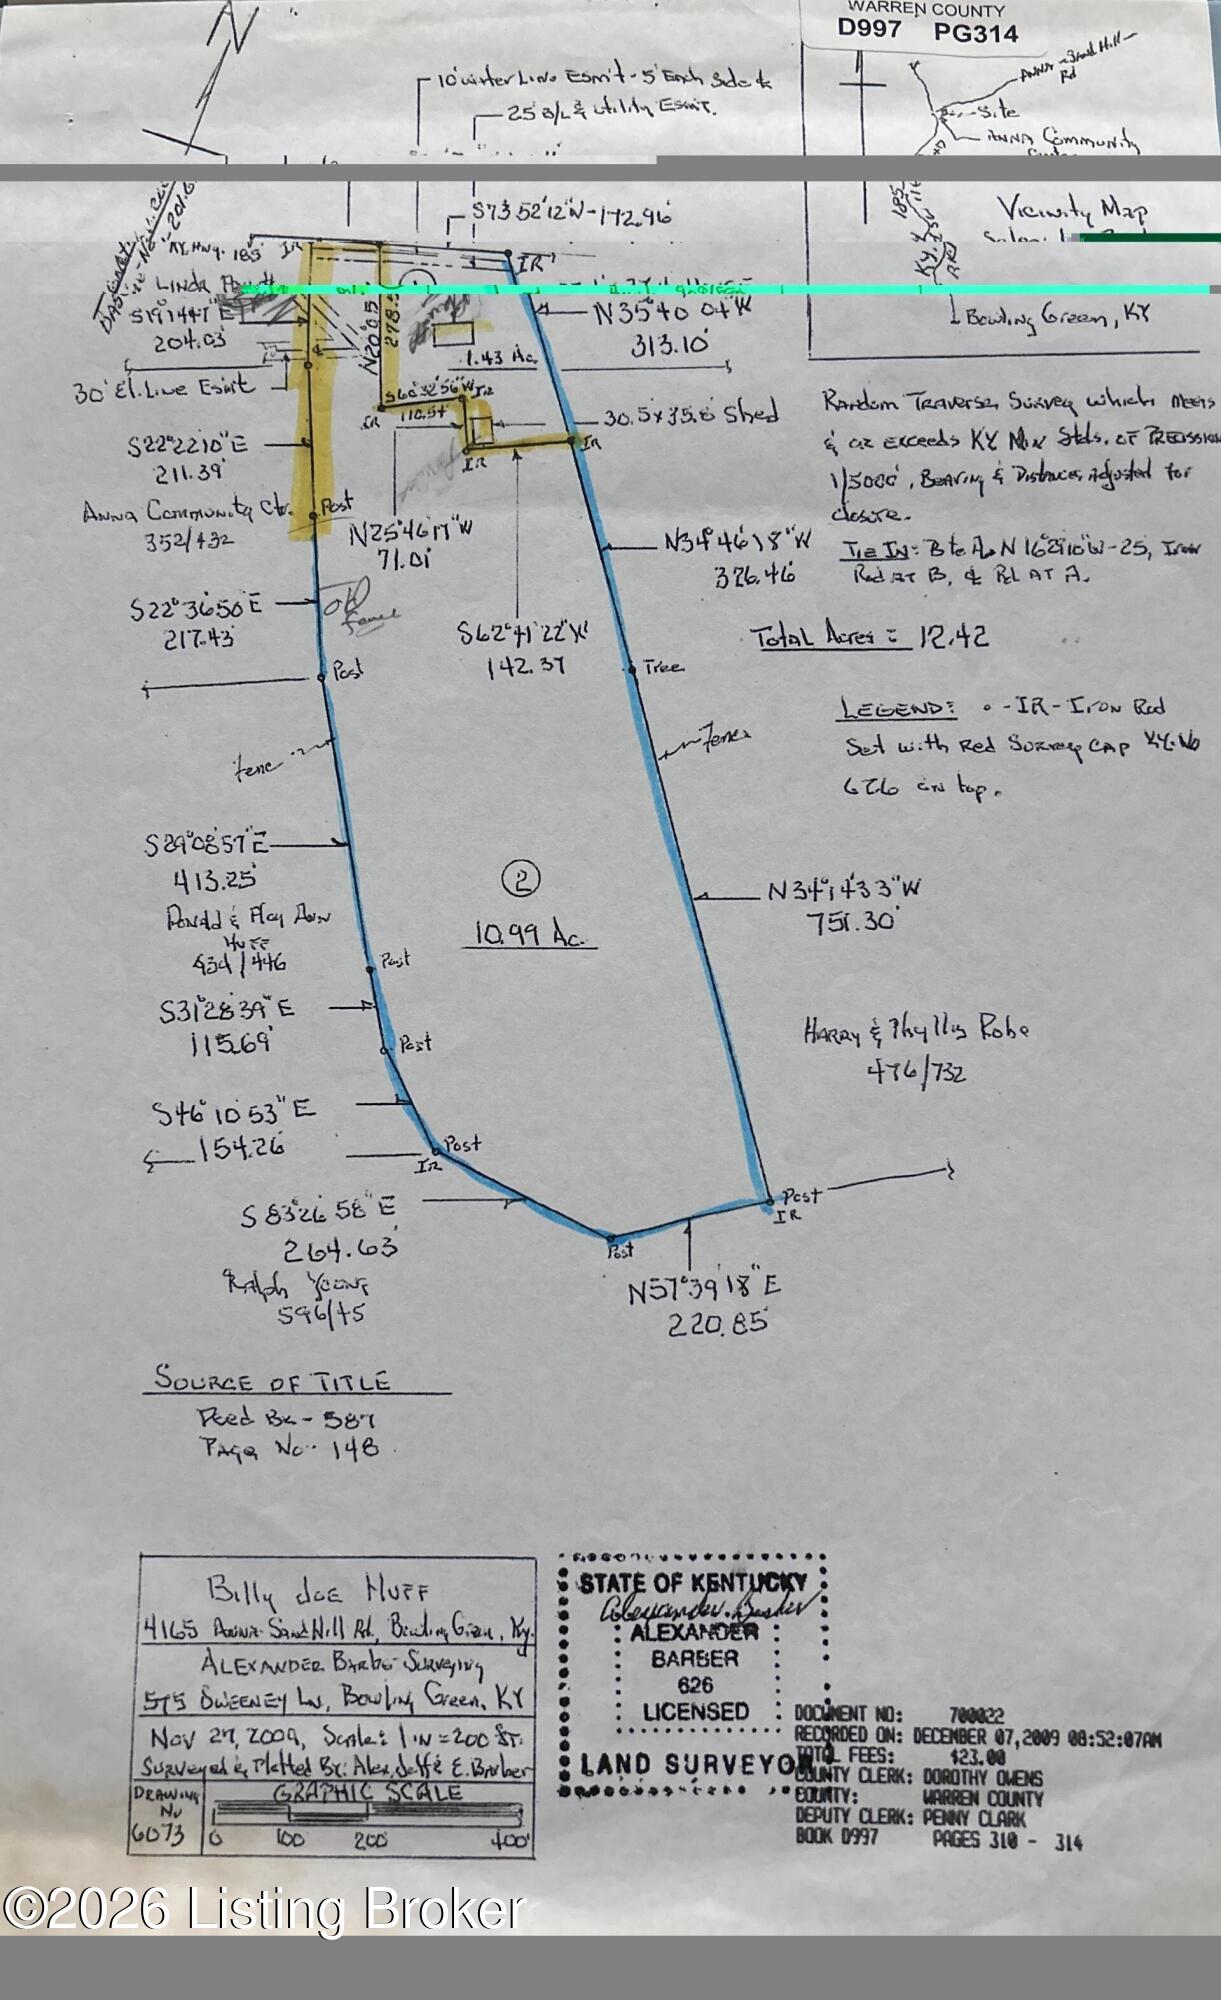 WARREN COUNTY
D997 PG314
N
10' water Line Esm't - 5' Each side
25' B/L & utility Esm't.
Anna - Sand Hill Rd
Site
Anna Community
S73°52'12"W - 172.96'
Vicinity Map
KY. Hwy. 185
IR
IR
KY 185
Linda
S19°14'47"E
204.03'
N35°40'04"W
313.10'
Bowling Green, KY
1.43 Ac.
30' El. Line Esm't
S60°32'56"W
110.54'
IR
IR
30.5 x 35.8' Shed
IR
IR
S22°22'10"E
211.39'
Post
Anna Community Ctr.
352/432
N25°46'17"W
71.01'
Random Traverse Survey which meets
& or exceeds KY Min Stds. of Precission
1/5000', Bearing & Distances Adjusted for
closure.
Tie In: B to A - N 16°29'10"W - 25, Iron
Rod at B, & P.L. at A.
N34°46'18"W
326.46'
S22°36'50"E
217.43'
Old
fence
S62°41'22"W
142.37
Total Acres = 12.42
Post
Tree
Legend: - IR - Iron Rod
Set with Red Survey Cap KY. No
626 on top.
fenc
Fence
S29°08'57"E
413.25'
Donald & Floy Ann
Huff
434/446
2
10.99 Ac.
N34°14'33"W
751.30'
Post
S31°28'39"E
115.69'
Post
Harry & Phyllis Robe
476/732
S46°10'53"E
154.26'
Post
IR
Post
IR
S83°26'58"E
264.63'
Post
Ralph Young
596/45
N57°39'18"E
220.85'
Source of Title
Deed Bk - 587
Page No - 148
Billy Joe Huff
4165 Anna-Sand Hill Rd., Bowling Green, Ky.
Alexander Barber Surveying
575 Sweeney Ln, Bowling Green, KY
Nov 27, 2009, Scale: 1 in = 200 ft.
Surveyed & Platted By: Alex, Jeff & E. Barber
Drawing No
6073
Graphic Scale
0 100 200 400'
STATE OF KENTUCKY
Alexander Barber
ALEXANDER
BARBER
626
LICENSED
LAND SURVEYOR
DOCUMENT NO: 700022
RECORDED ON: DECEMBER 07,2009 08:52:07AM
TOTAL FEES: $23.00
COUNTY CLERK: DOROTHY OWENS
COUNTY: WARREN COUNTY
DEPUTY CLERK: PENNY CLARK
BOOK D997 PAGES 310 - 314
©2026 Listing Broker